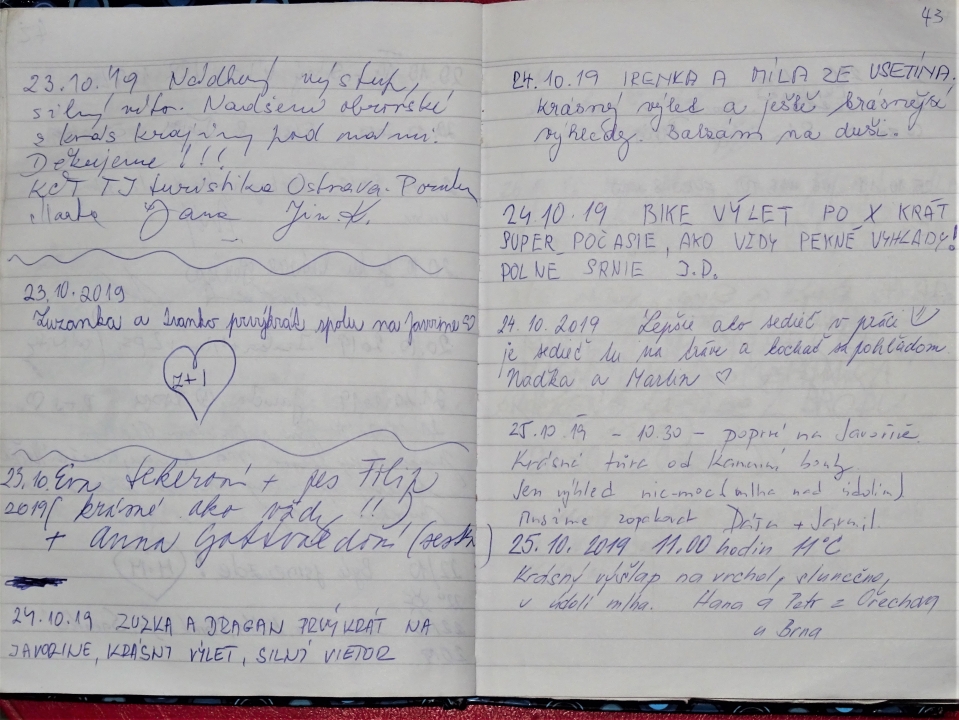 23.10.'19 Nádherný výstup,
silný vítr. Nadšení obrovské
z krás krajiny pod námi!
Děkujeme !!!
KČT TJ turistika Ostrava-Poruba
Marta Jana Jin.K.
23.10.2019
Zuzanka a Ivanko prvýkrát spolu na Javorine
Z+I
23.10. Eva Sekerová + pes Filip
2019 ( krásné ako vždy !! )
+ Anna (sestra)
24.10.19 ZUZKA A DRAGAN PRVÝKRÁT NA
JAVORINE, KRÁSNI VÝLET, SILNÍ VIETOR
43
24.10.19 IRENKA A MÍLA ZE VSETÍNA.
Krásný výlet a ještě krásnější
výhledy. Balzám na duši.
24.10.19 BIKE VÝLET PO X KRÁT
SUPER POČASIE, AKO VŽDY PEKNÉ VÝHĽADY!
POLNÉ SRNIE J.D.
24.10.2019 Lepšie ako sedieť v práci
je sedieť tu na tráve a kochať sa pohľadom
Naďka a Martin ♡
25.10.19 - 10.30 - poprvé na Javořině.
Krásná túra od Kamenné boudy
Jen výhled nic-moc (mlha nad údolím)
Musíme zopakovat Dáša + Jarmil
25.10.2019 11.00 hodin 11°C
Krásný výšlap na vrchol, slunečno,
v údolí mlha. Hana a Petr z Ořechova
u Brna